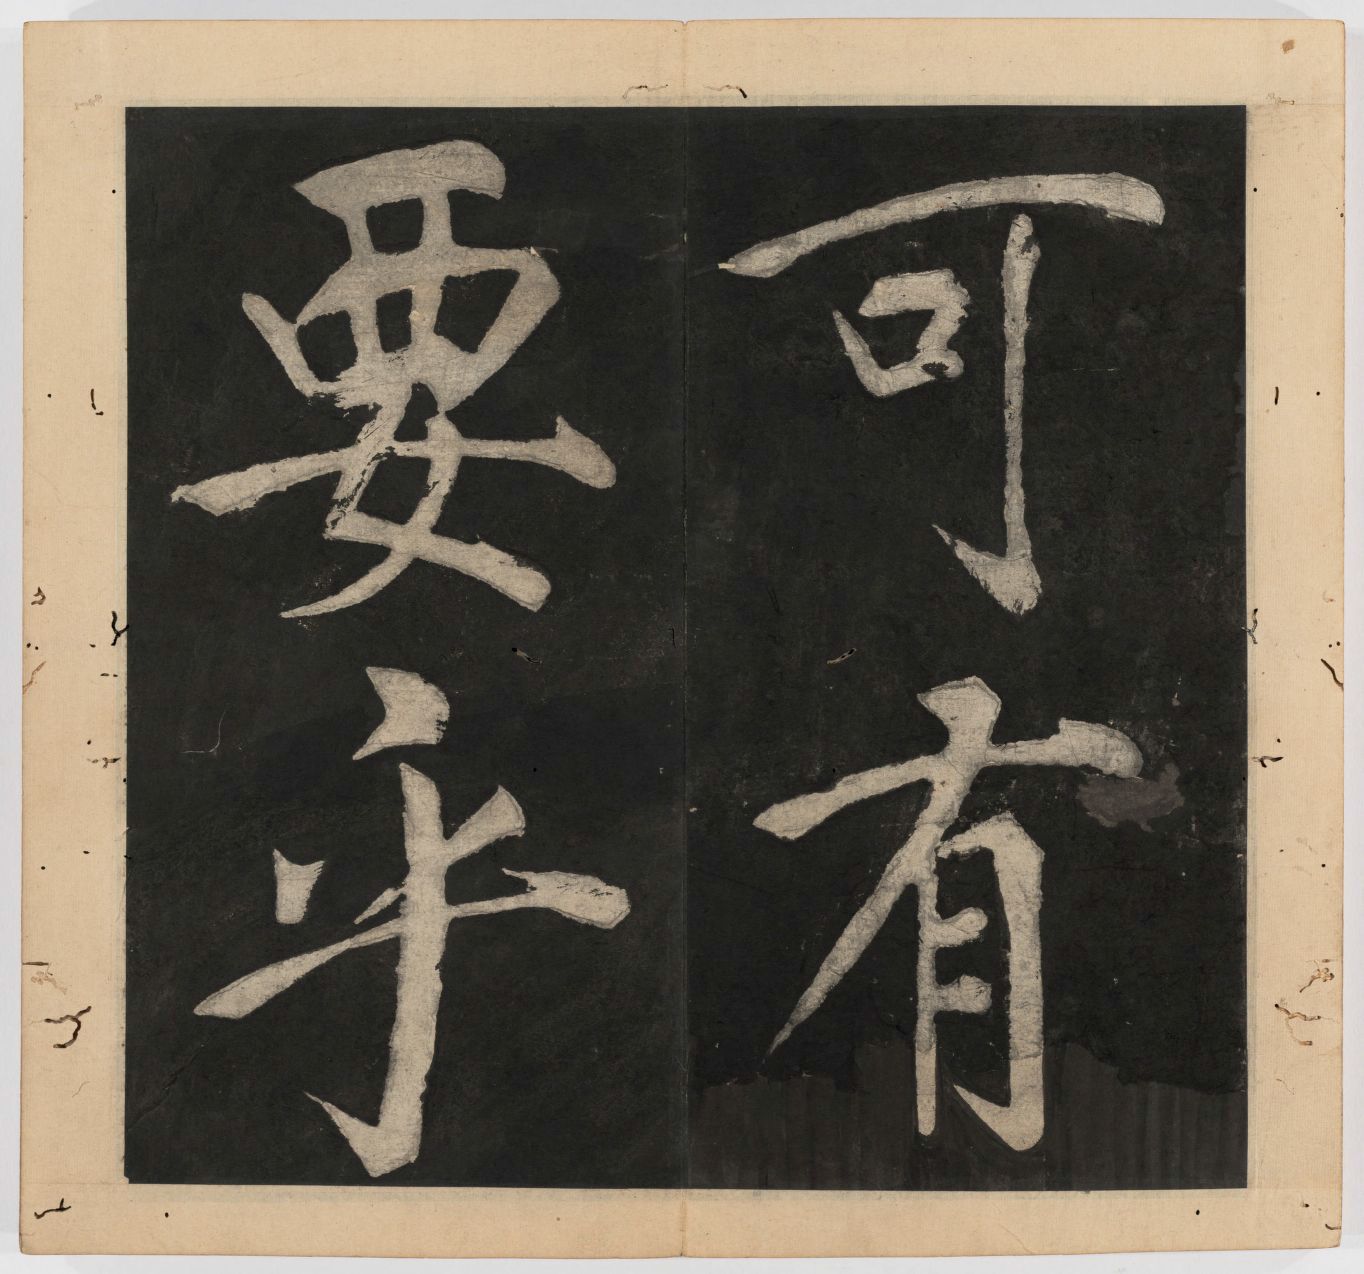 可有
要乎